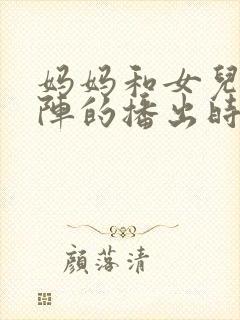 妈妈和女兒
陣的播出時
顔落清